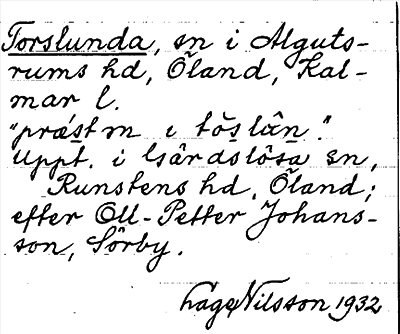 Torslunda, sn i Alguts-
rums hd, Öland, Kal-
mar l.
"præstn i tåslån".
Uppt. i Gårdslösa sn,
Runstens hd, Öland;
efter Oll-Petter Johans-
son, Sörby.
Lage Nilsson 1932